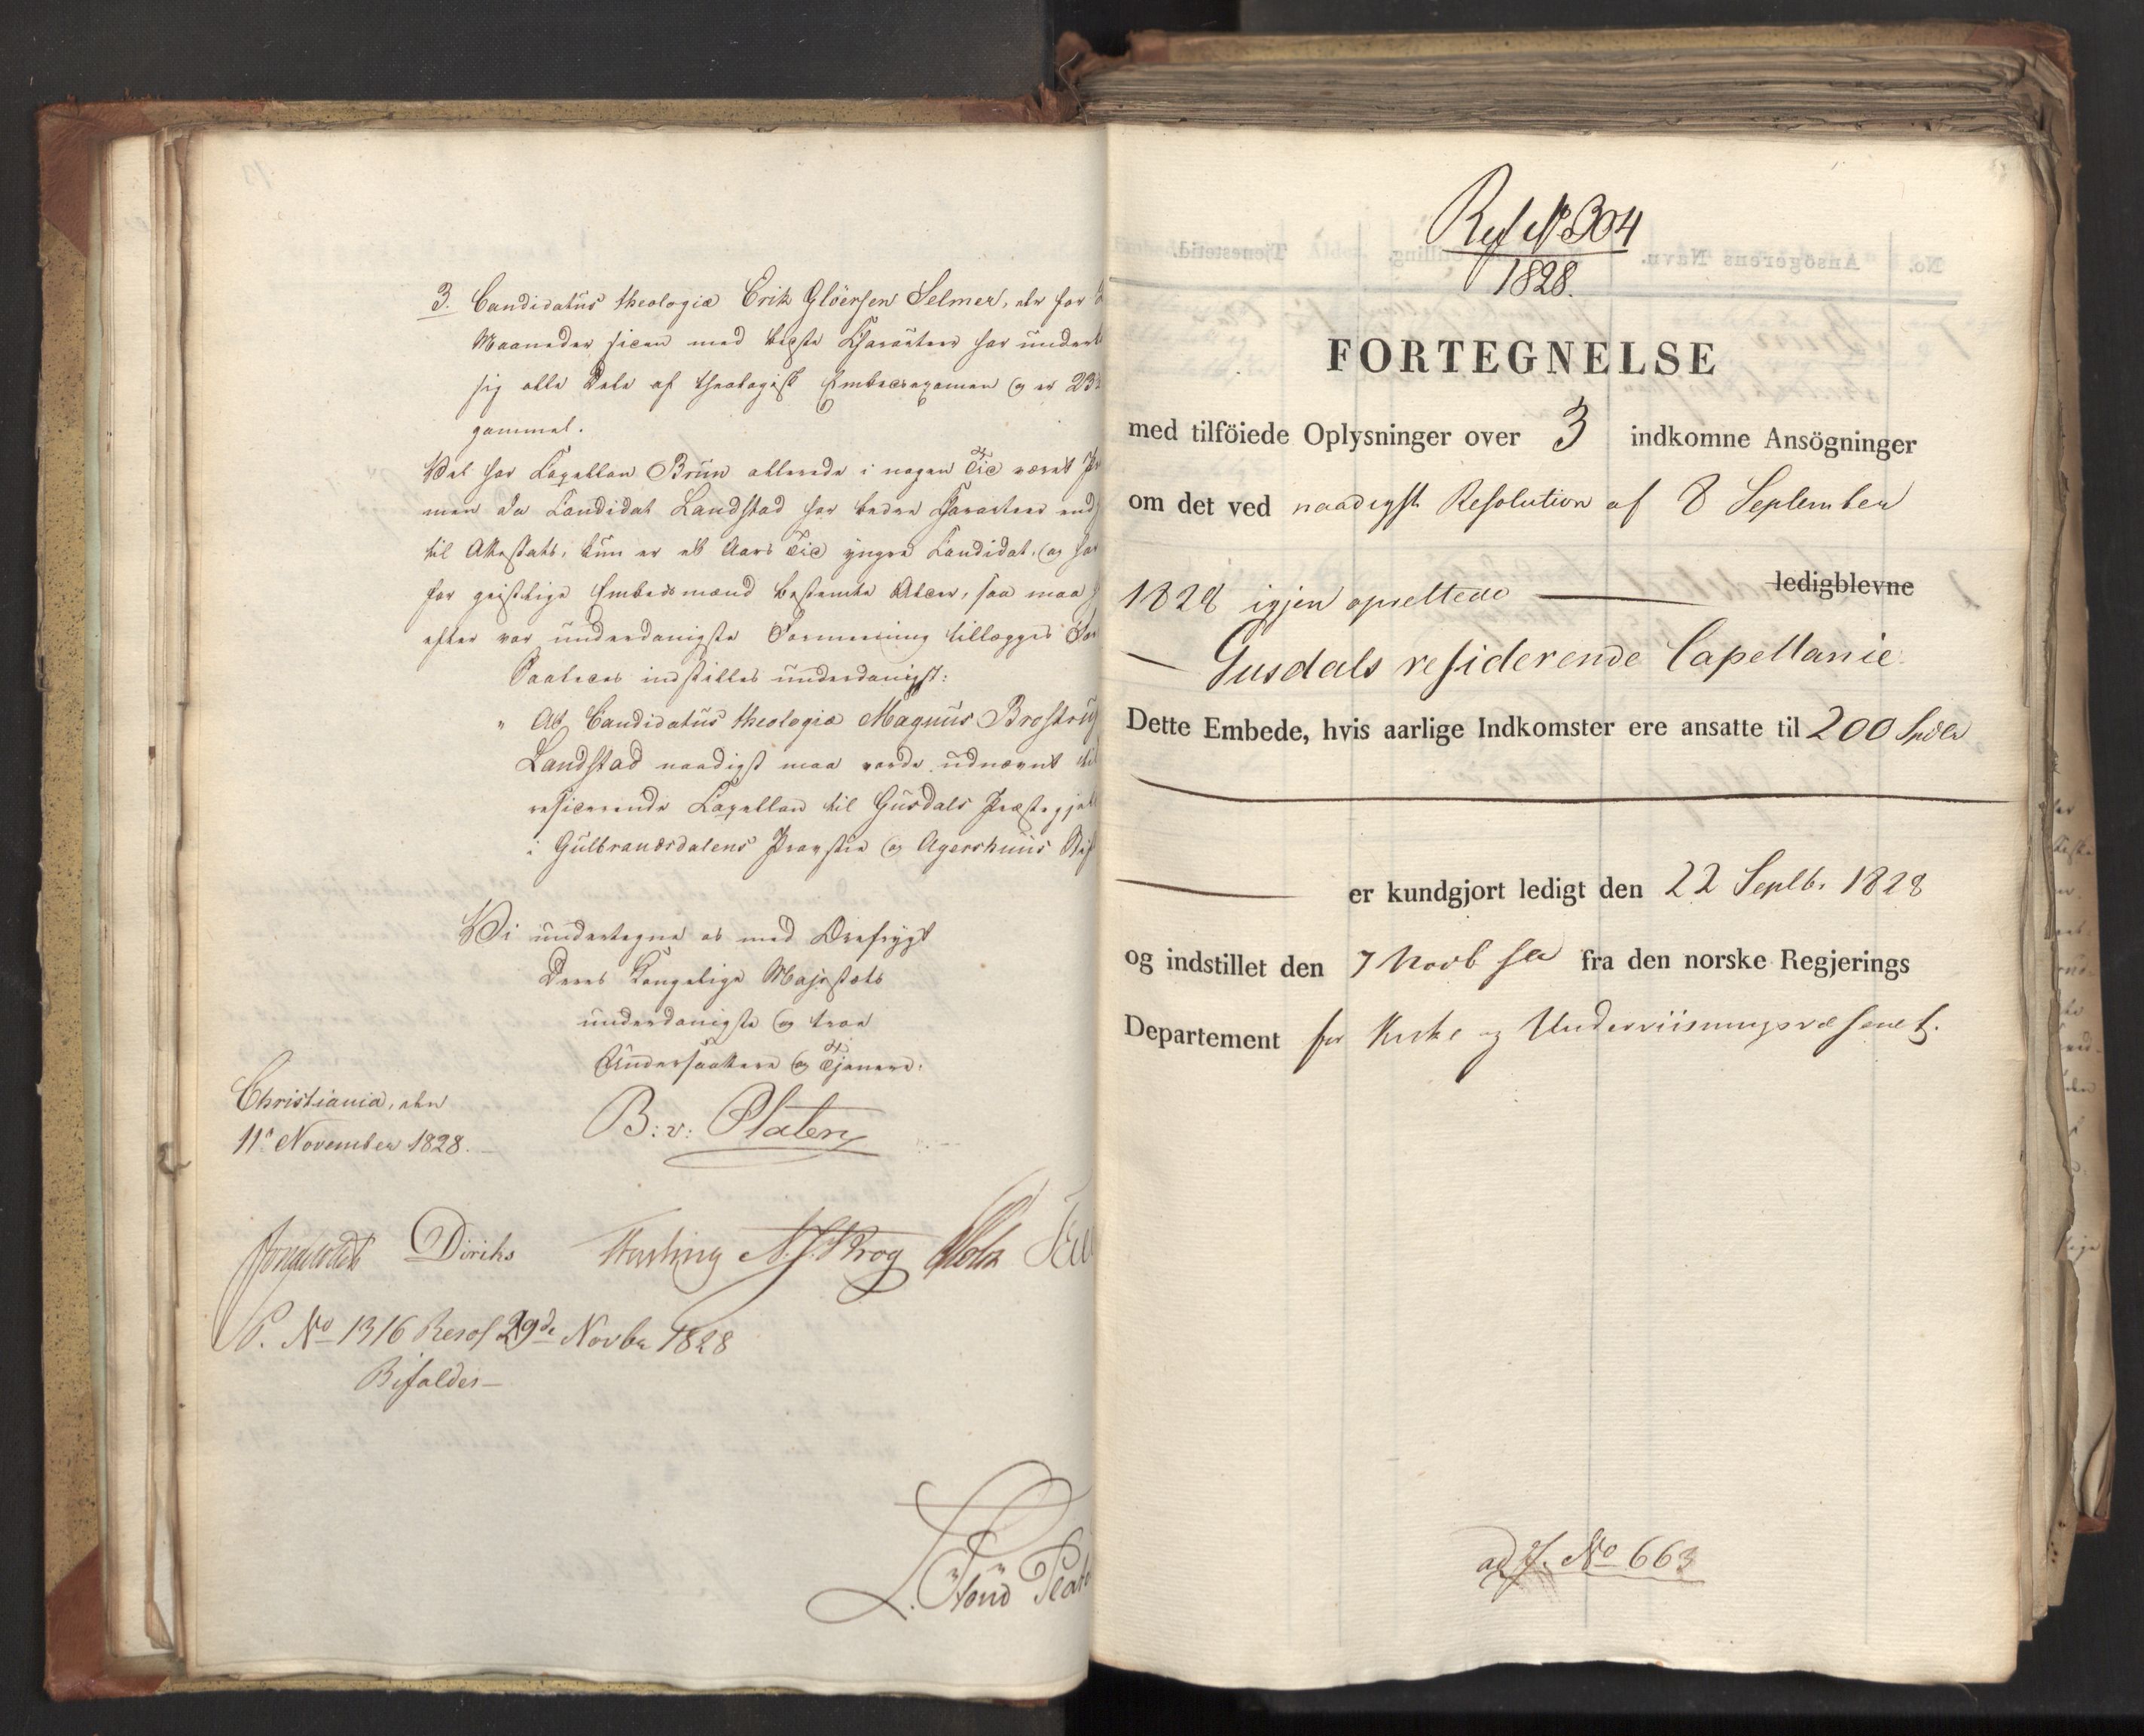 3. Candidatus theologiæ Erik Glöersen Selmer, der for
Maaneder siden med bedste Charakteer har underk
sig alle Dele af theologisk Embedsexamen og er 23
gammel.
Vel har Capellan Brun allerede i nogen Tid været
men da Candidat Landstad har bedre Characteer end
til Attestats, kun er et Aars Tid yngre Candidat, og har
for geistlige Embedsmænd bestemte Alder, saa maa
efter vor underdanigste Formening tillægges
Saaledes indstilles underdanigst:
" At Candidatus theologiæ Magnus Brostrup
Landstad naadigst maa vorde udnævnt til
residerende Capellan til Gusdals Præstegjeld
i Gulbrandsdalens Provstie og Agershuus Stift
Vi undertegne os med Dybfrygt
Deres Kongelige Majestæts
underdanigste og troe
Undersaatter og Tjenere:
Christiania, den
11te November 1828.
B: v: Platen
Diriks N. J. Krog
P. No 1316 Resol 29de Novbr 1828
Bifaldes
Ref No 304
1828.
FORTEGNELSE
med tilföiede Oplysninger over 3 indkomne Ansögninger
om det ved naadigst Resolution af 8 September
1828 igjen oprettede ledigblevne
Gusdals residerende Capellanie
Dette Embede, hvis aarlige Indkomster ere ansatte til 200 Spdlr
er kundgjort ledigt den 22 Septb. 1828
og indstillet den 7 Novb fra den norske Regjerings
Departement for Kirke og Underviisningsvæsenet.
ad J. No 663